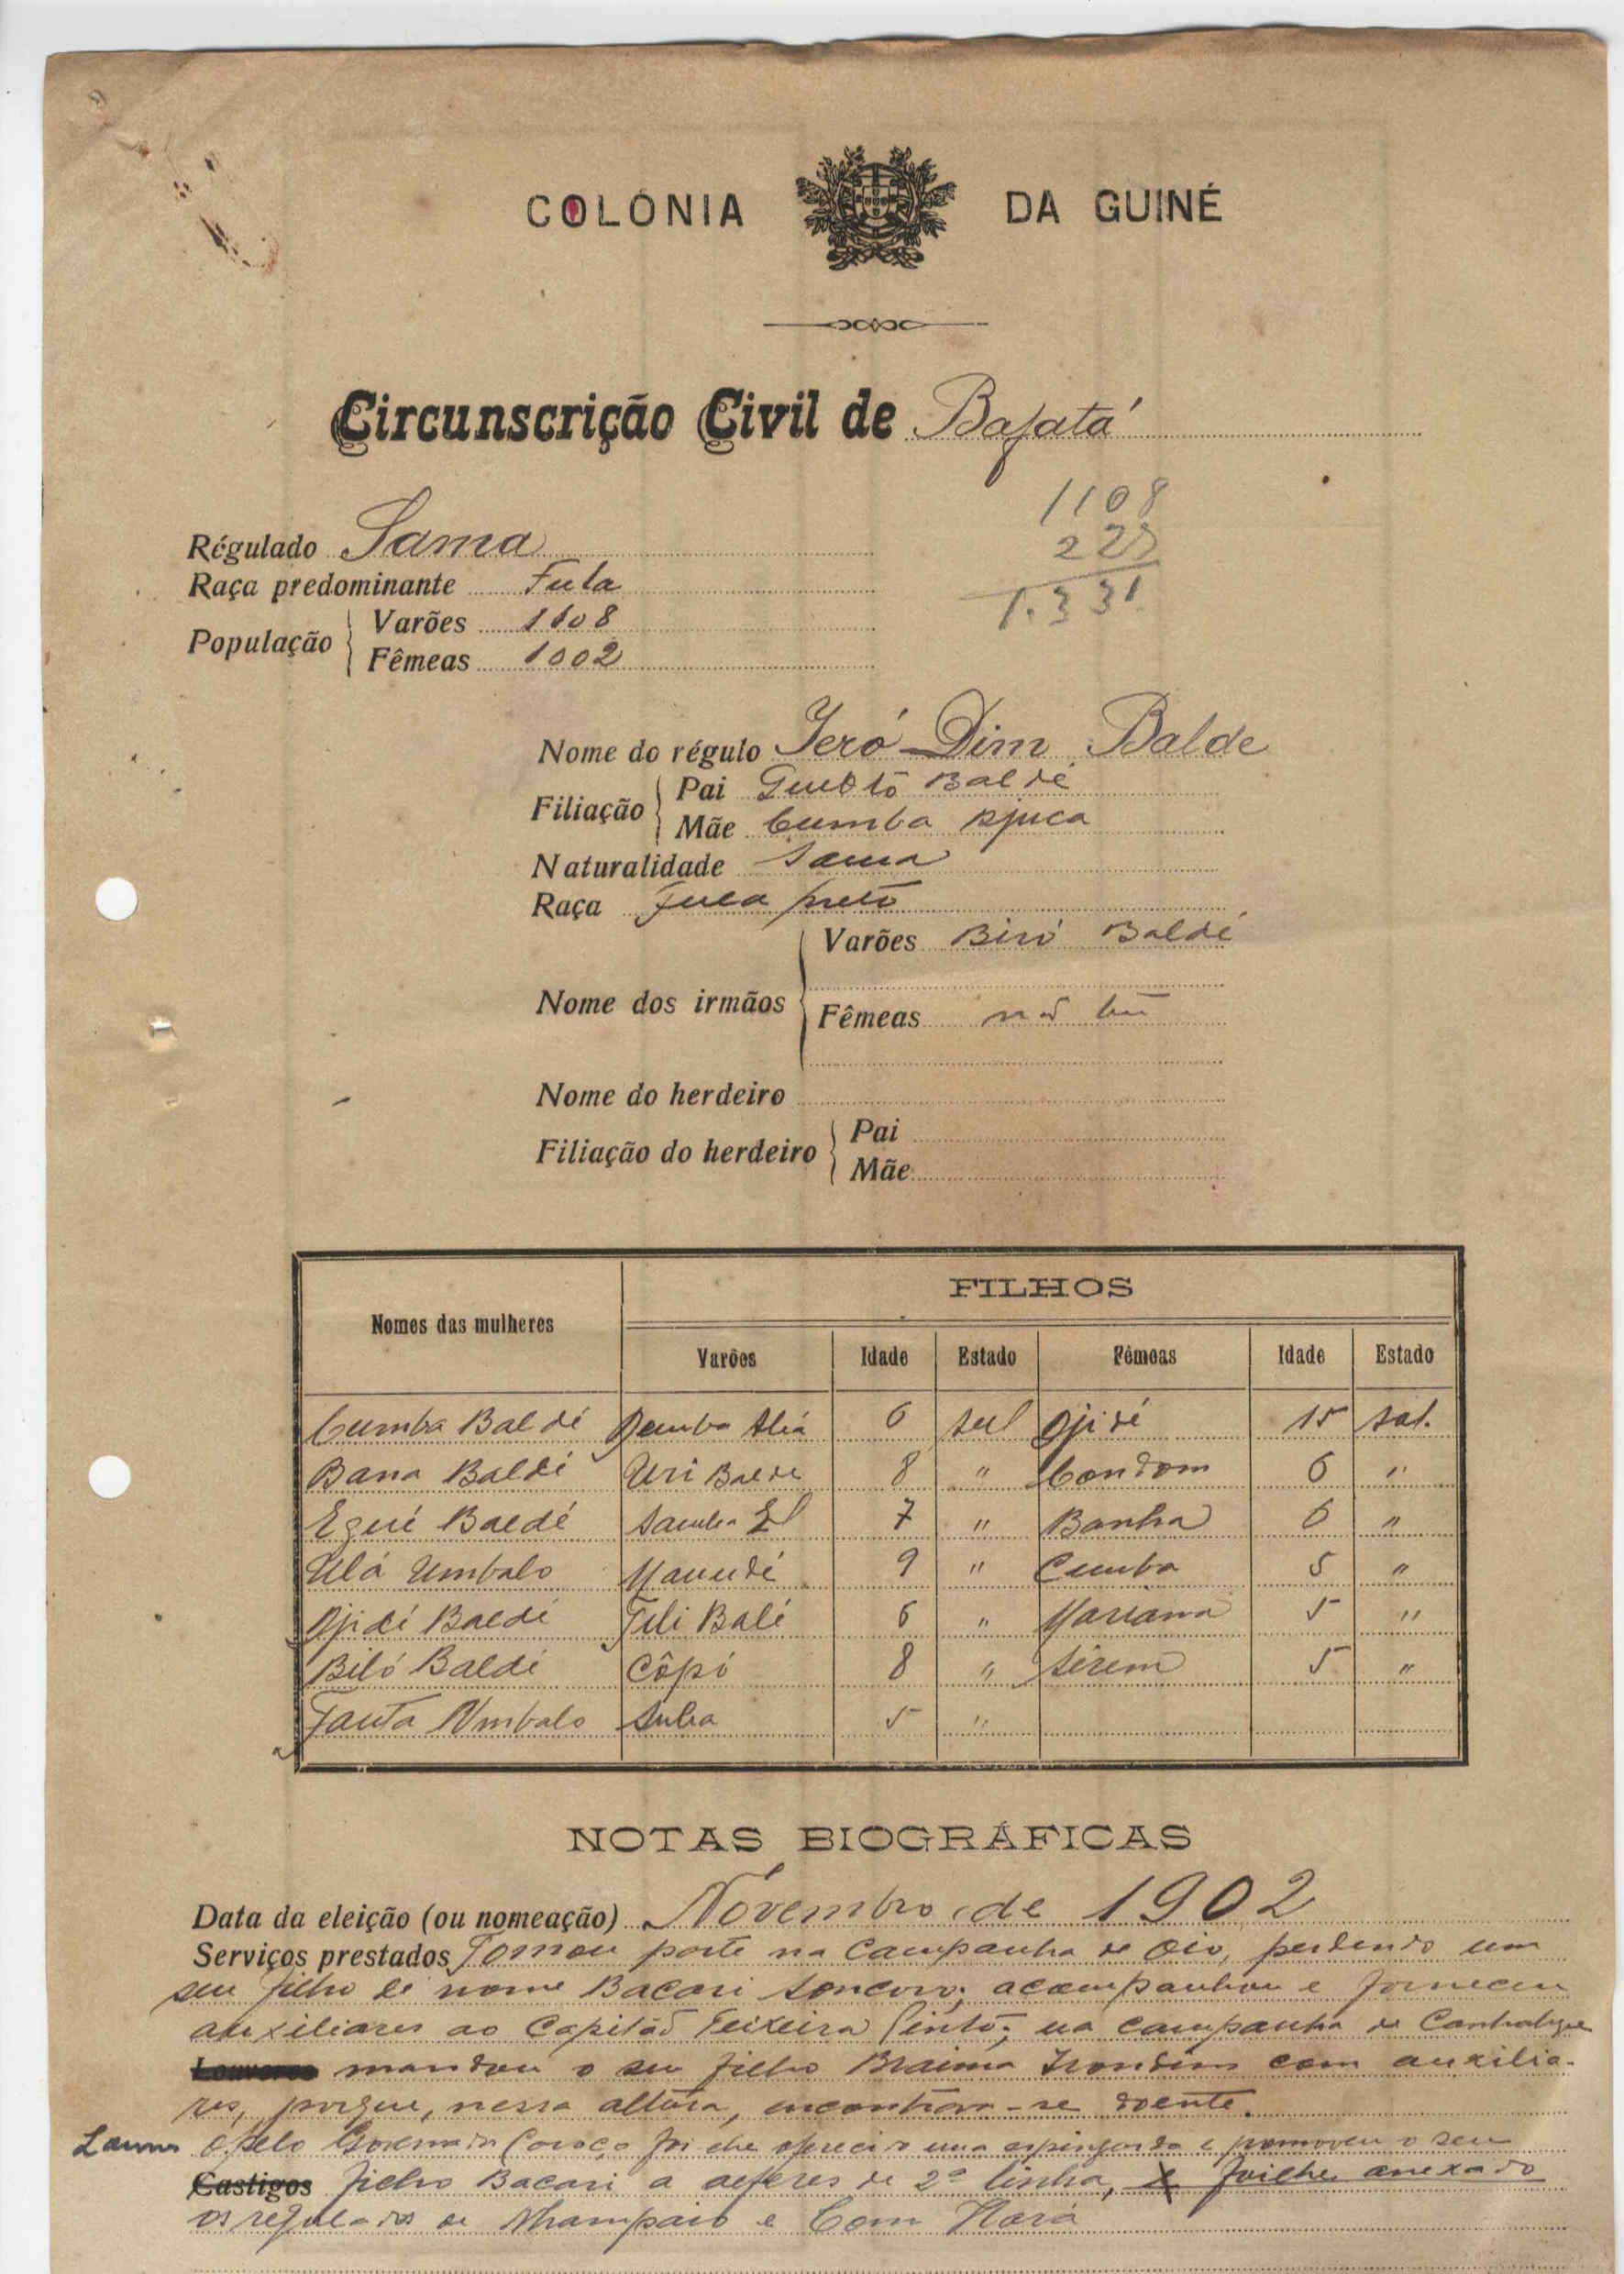 COLÓNIA DA GUINÉ
Circunscrição Civil de Bafatá
1108
223
1.331
Régulado Sama
Raça predominante Fula
População
Varões 1108
Fêmeas 1002
Nome do régulo Jeró Dim Balde
Filiação
Pai Baldé
Mãe Cumba Djuca
Naturalidade Sama
Raça Fula preto
Nome dos irmãos
Varões Biró Baldé
Fêmeas não tem
Nome do herdeiro
Filiação do herdeiro
Pai
Mãe
Nomes das mulheres FILHOS
Varões Idade Estado Fêmeas Idade Estado
Cumba Baldé Demba Aliá 6 sol Djidé 15 sol.
Bana Baldé Uri Balde 8 " Condom 6 "
Egué Baldé Samba 7 " Banha 6 "
Ulá Umbalo Mamudé 9 " Cumba 5 "
Djidé Baldé Fili Balé 6 " Mariama 5 "
Biló Baldé Côpó 8 " Sirem 5 "
Fanta Umbalo 5 "
NOTAS BIOGRÁFICAS
Data da eleição (ou nomeação) Novembro de 1902
Serviços prestados Tomou parte na campanha de Oio, perdendo um
seu filho de nome Bacari acompanhou e forneceu
auxiliares ao Capitão Teixeira Pinto; na campanha de
mandou o seu filho Braima com auxilia-
res, porque, nessa altura, encontrava-se doente.
Louvores Pelo Governador foi-lhe oferecido uma espingarda e promoveu o seu
Castigos filho Bacari a alferes de 2ª linha, e foilhe anexado
os regulados de Nhampaio e Com Hará